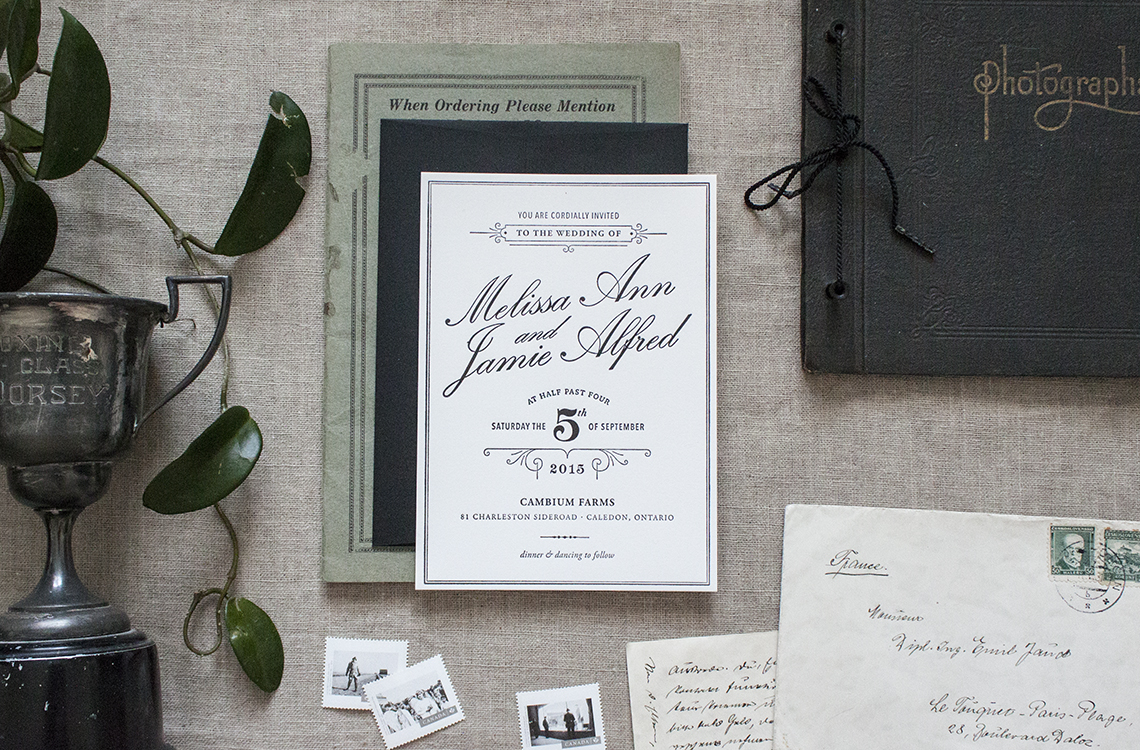 When Ordering Please Mention
Photographs
YOU ARE CORDIALLY INVITED
TO THE WEDDING OF
Melissa Ann
and
Jamie Alfred
AT HALF PAST FOUR
SATURDAY THE 5th OF SEPTEMBER
2015
CAMBIUM FARMS
81 CHARLESTON SIDEROAD · CALEDON, ONTARIO
dinner & dancing to follow
OXING
CLASS
DORSEY
France.
Monsieur
Dipl. Ing. Emil
Le Touquet-Paris-Plage,
Boulevard Daloz
CANADA
CANADA